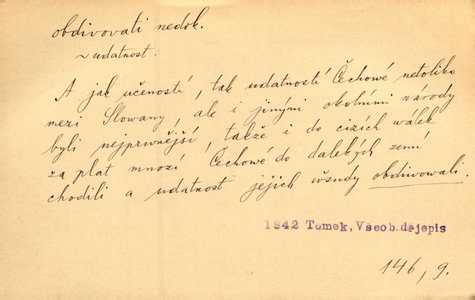 obdivovati nedok.
~ udatnost.
A jak učeností, tak udatností Čechowé netoliko
mezi Slowany, ale i jinými okolními národy
byli nejprwnější, takže i do cizích wálek
za plat mnozí Čechowé do dalekých zemí
chodili a udatnost jejich wšudy obdivowali.
1842 Tomek, Vseob. dějepis
146, 9.